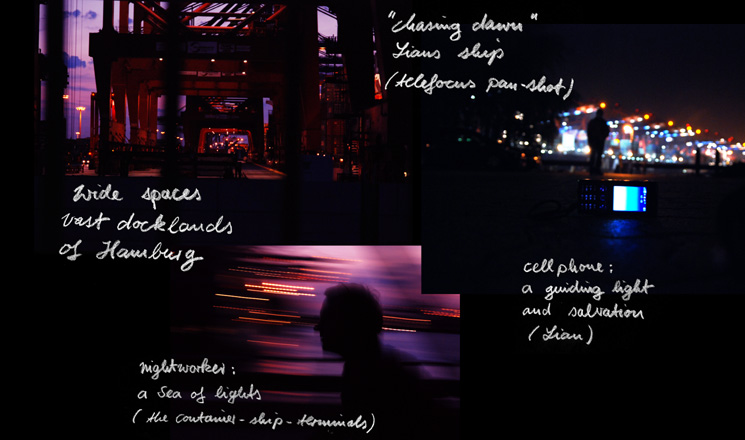 "chasing dawn"
Lians ship
(telefocus pan-shot)
Wide spaces
vast docklands
of Hamburg
cellphone:
a guiding light
and salvation
(Lian)
nightworker:
a Sea of lights
(the container-ship-terminals)